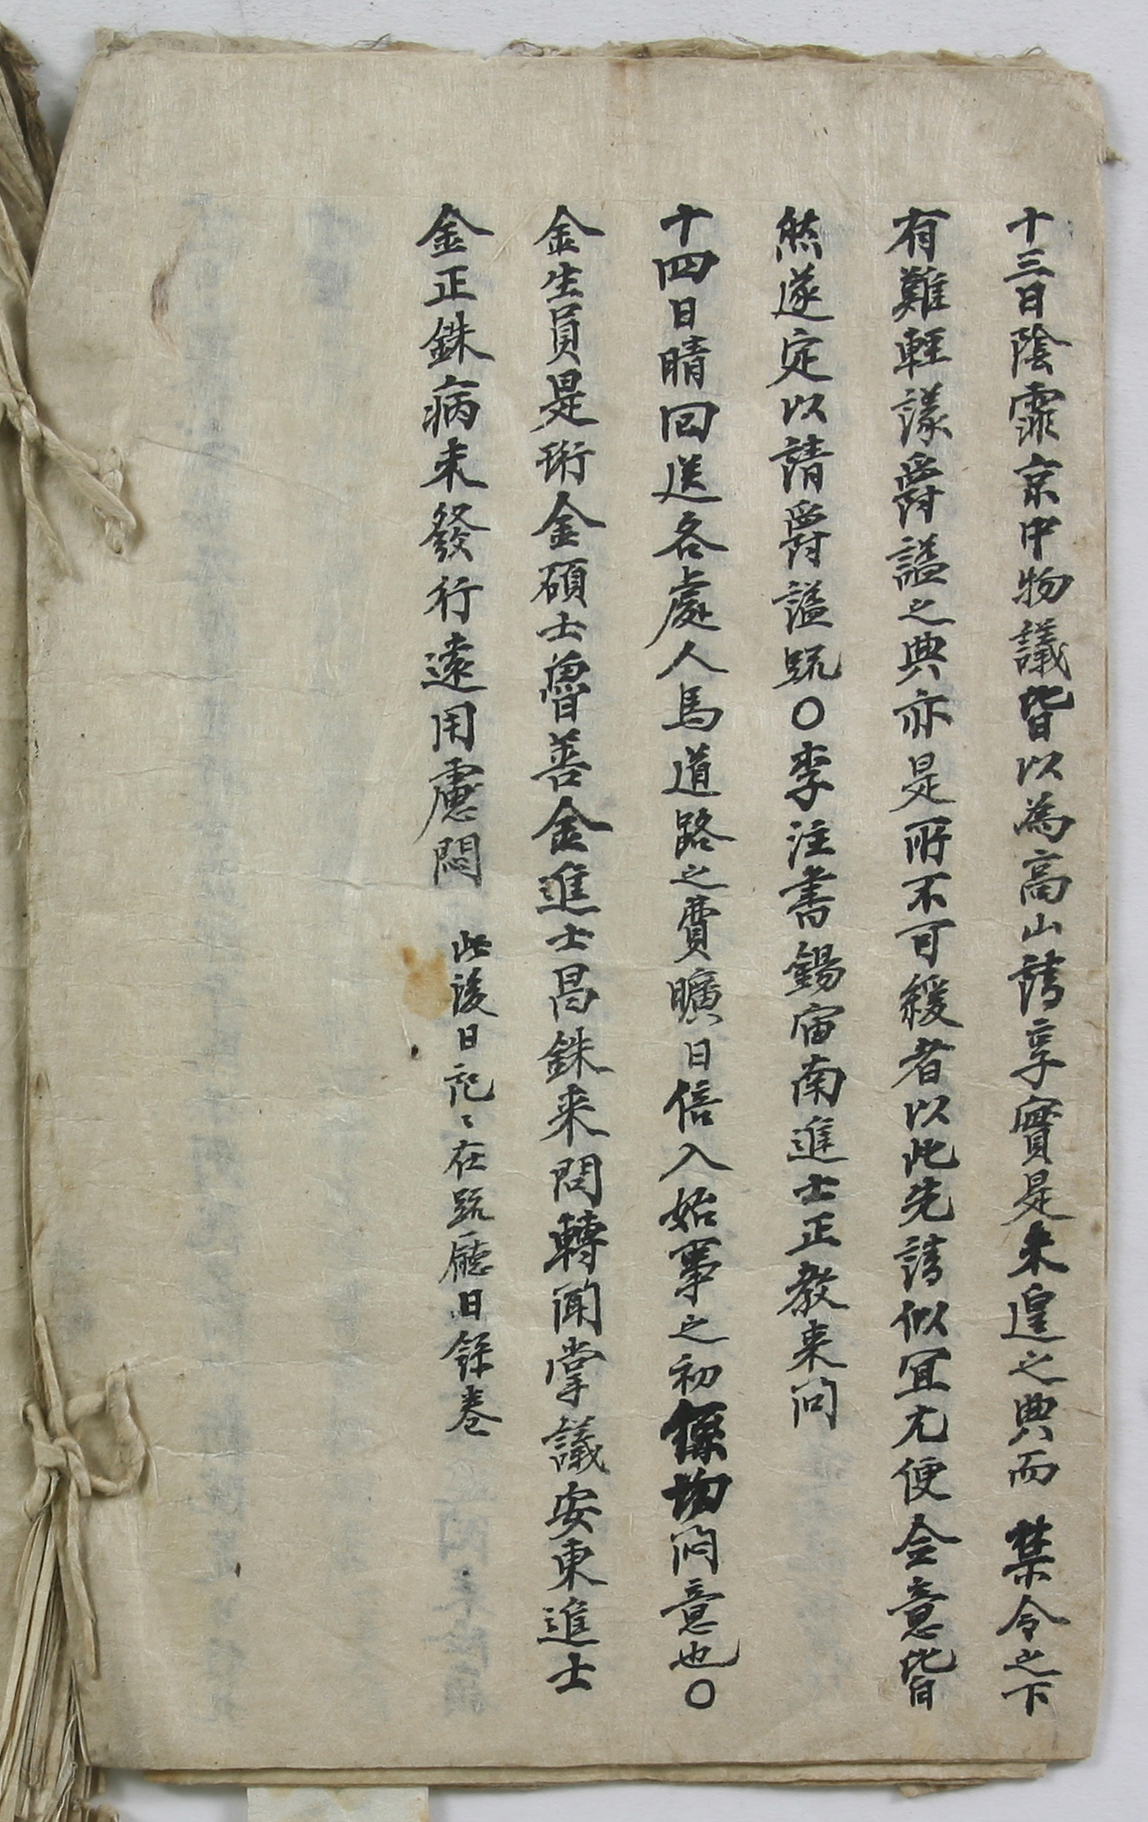 十三日陰霏京中物議皆以為高山請享實是未遑之典而 禁令之下
有難輕議爵謚之典亦是所不可緩者以此先請似宜尤便僉意皆
然遂定以請爵謚䟽○李注書錫宙南進士正敎来问
十四日晴回送各處人馬道路之費曠日倍入始事之初 均闷意也○
金生員是珩金碩士魯善金進士昌銖来問轉聞掌議安東進士
金正銖病未發行遠用慮悶 此後日記〻在䟽廳日錄卷